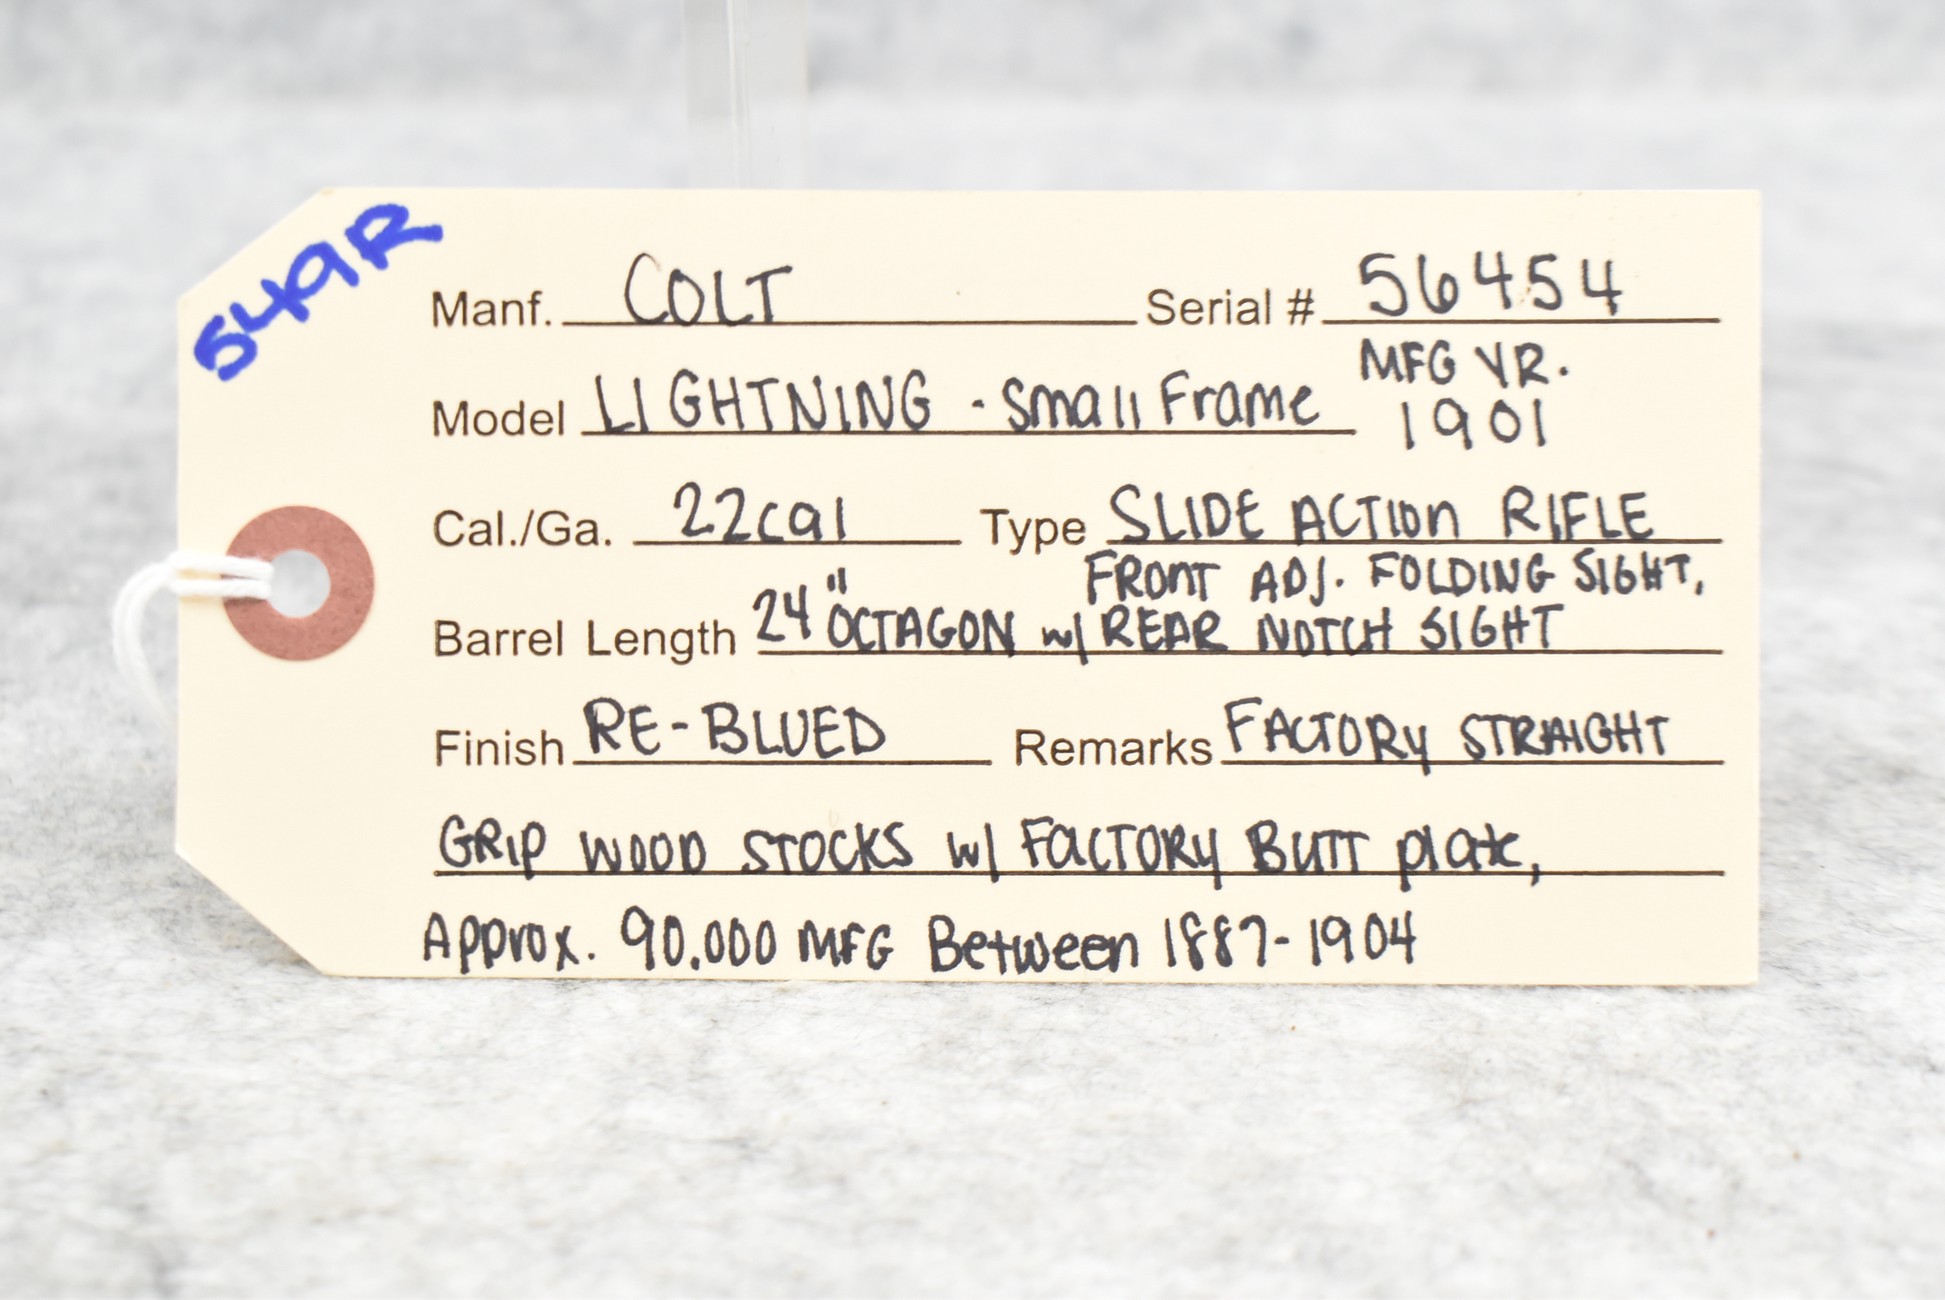 549R
Manf. COLT Serial # 56454
Model LIGHTNING - Small Frame MFG YR.
1901
Cal./Ga. 22cal Type SLIDE ACTION RIFLE
FRONT ADJ. FOLDING SIGHT,
Barrel Length 24" OCTAGON w/ REAR NOTCH SIGHT
Finish RE-BLUED Remarks FACTORY STRAIGHT
GRIP WOOD STOCKS w/ FACTORY BUTT plate,
Approx. 90.000 MFG Between 1887-1904